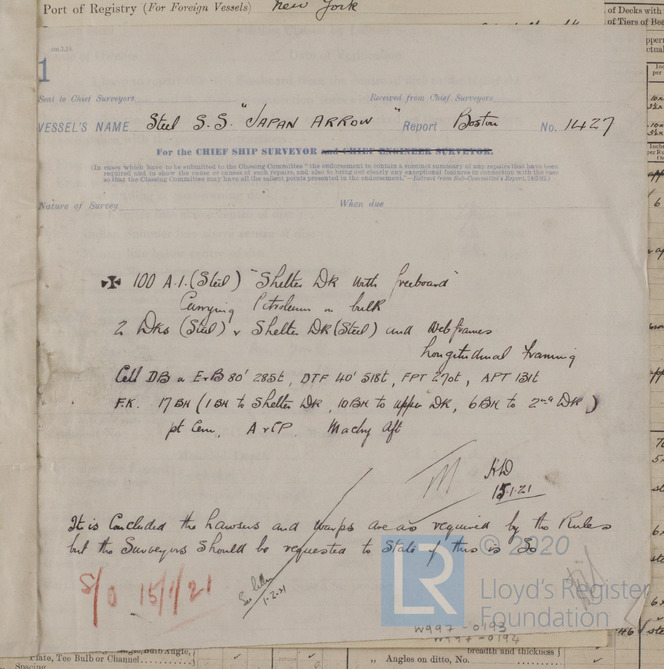 Port of Registry (For Foreign Vessels) New York
of Decks with
of Tiers of Bea
1
Sent to Chief Surveyors
Received from Chief Surveyors
VESSEL'S NAME Steel S.S. "JAPAN ARROW" Report Boston No. 1427
For the CHIEF SHIP SURVEYOR and CHIEF ENGINEER SURVEYOR.
(In cases which have to be submitted to the Classing Committee "the endorsement to contain a succinct summary of any repairs that have been
required and to show the cause or causes of such repairs, and also to bring out clearly any exceptional features in connection with the case
so that the Classing Committee may have all the salient points presented in the endorsement."—Extract from Sub-Committee's Report,
Nature of Survey
When due
✠ 100 A.1. (Steel) "Shelter Dk with freeboard"
Carrying Petroleum in bulk
2 Dks (Steel) & Shelter Dk (Steel) and Web frames
Longitudinal framing
Cell DB u E&B 80' 285t, DTF 40' 518t, FPT 270t, APT 131t
F.K. 17 BH (1 BH to Shelter Dk, 10 BH to upper Dk, 6 BH to 2nd Dk)
pt Cem, A&CP. Machy Aft
15.1.21
It is Concluded the hawsers and warps are as required by the Rules
but the Surveyors should be requested to State if this is So
S/O 15/1/21
See letter
1-2-21
© 2020
LR
Lloyd's Register
Foundation
W997-0193
W997-0194
Plate, Tee Bulb or Channel
Spacing
breadth and thickness
" Angles on ditto, No.